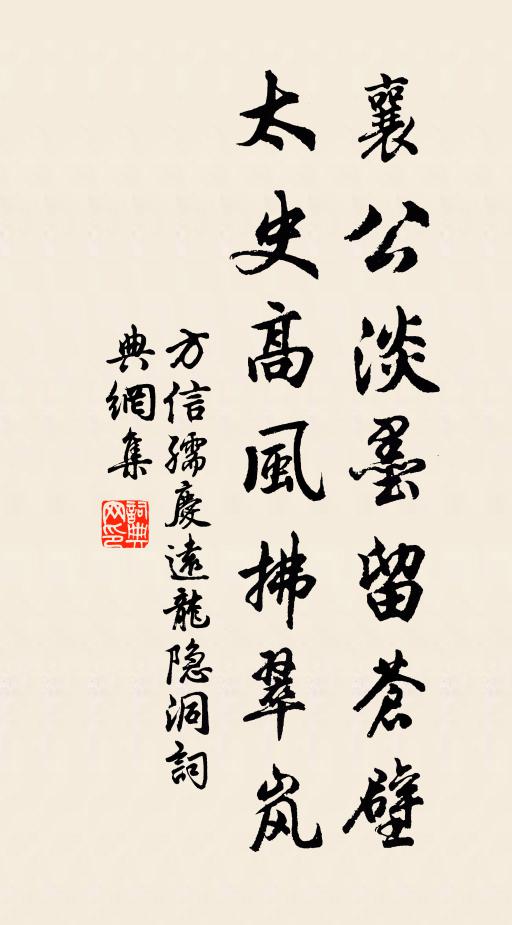 襄公淡墨留蒼壁
太史高風拂翠岚
方信孺慶遠龍隐洞詞
典網集
詞典网印